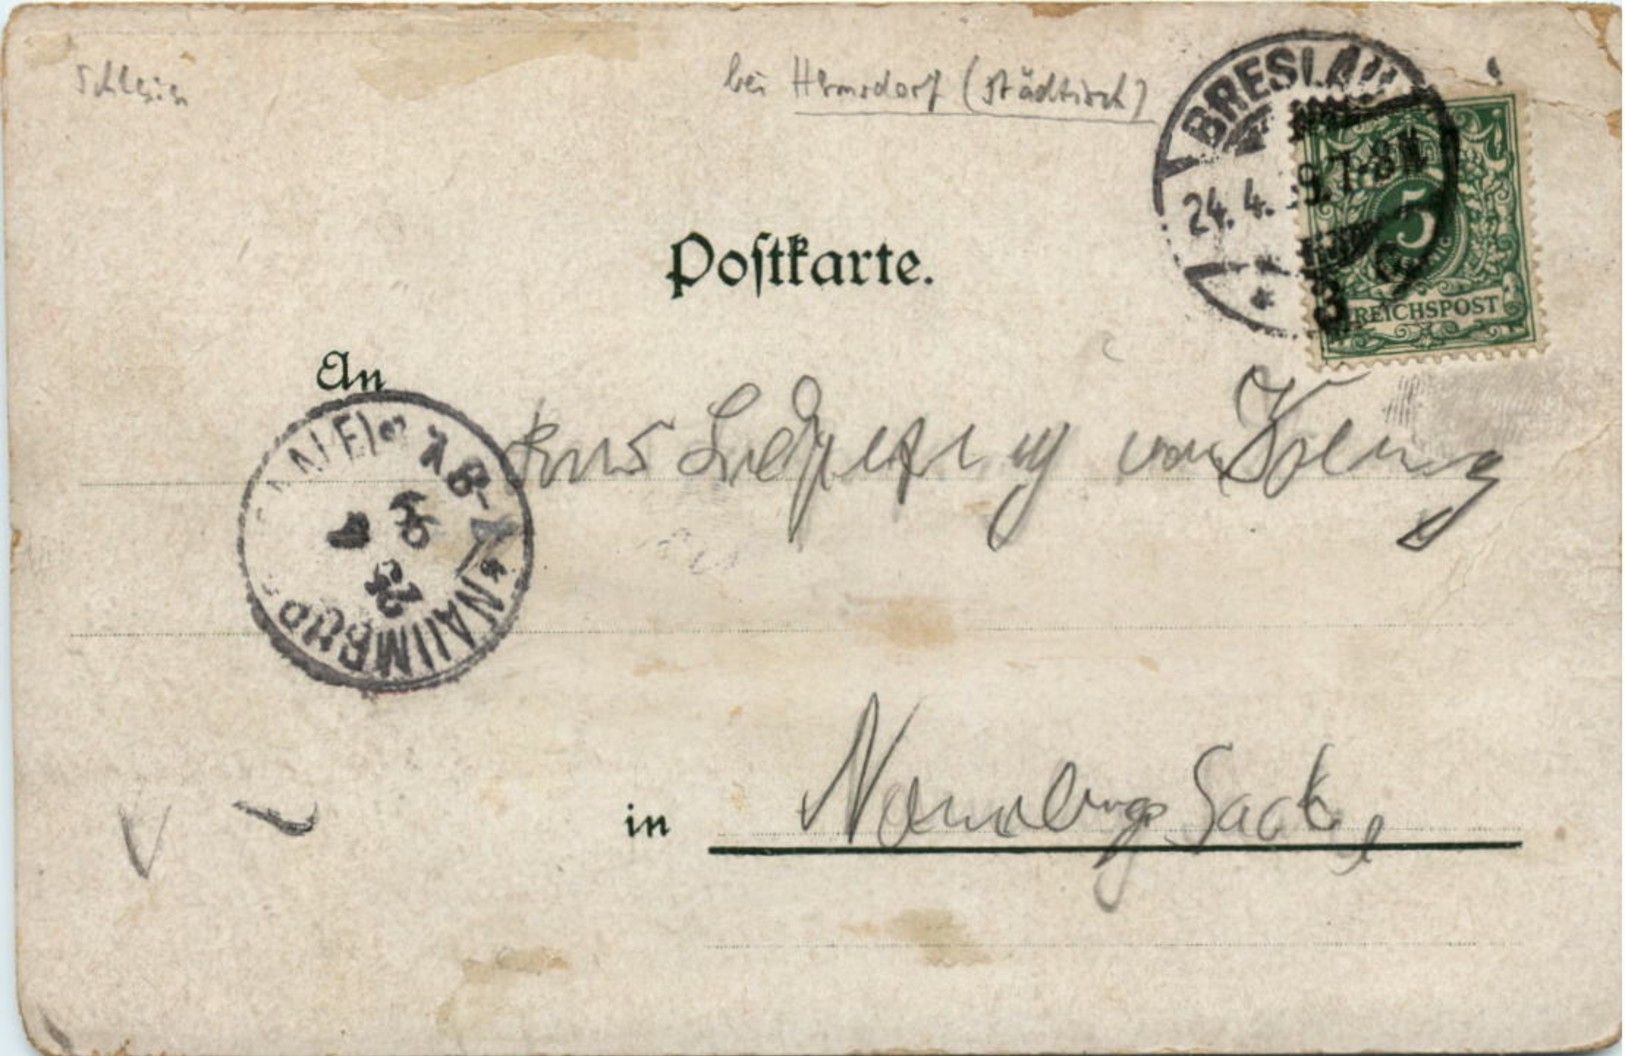 Schlesien
bei Hermsdorf (städtisch)
BRESLAU
24.4. 99.7-8N
5
REICHSPOST
3
Postkarte.
An
von
NAUMBURG
25
4
99
7-8V
in Naumburg Saale